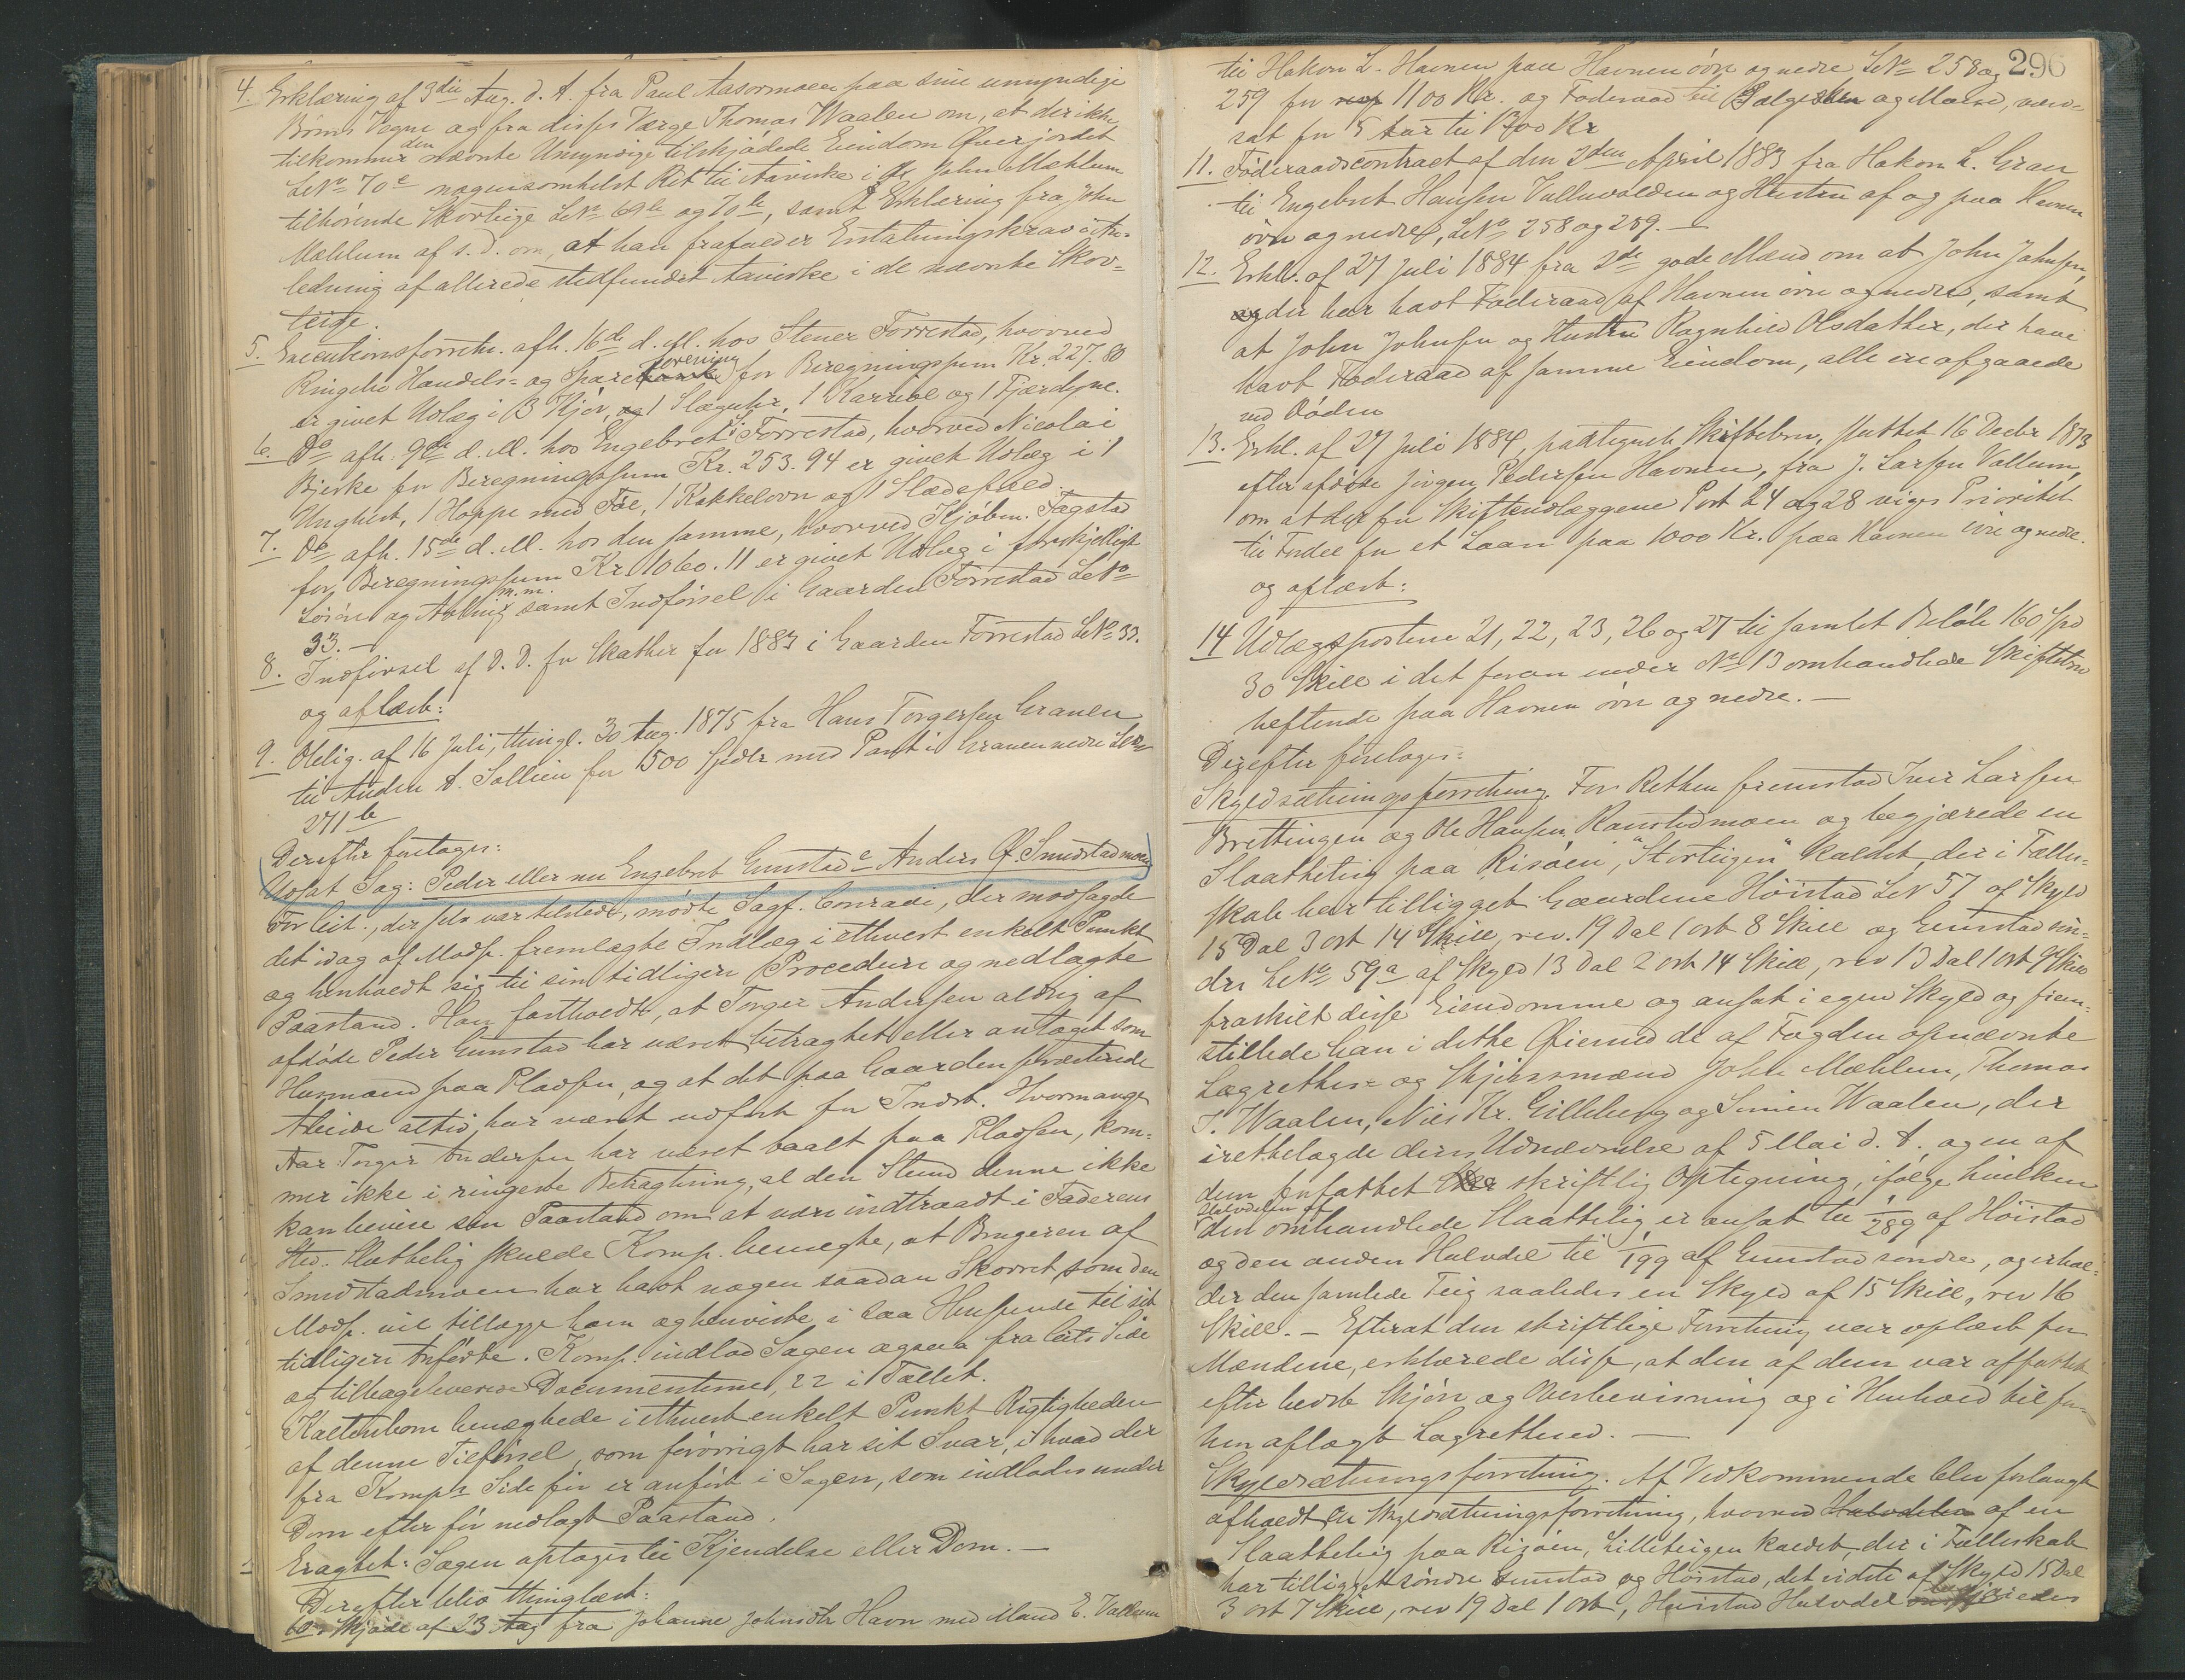 4. Erklæring af 3die Aug. d. A. fra Paul Aasormoen paa sine umyndige
Børns Vegne og fra disses Værge Thomas Waalen om, at der ikke
tilkommer den nævnte Umyndige tilskjødede Eiendom Øverjordet
LNo 70c nogensomhelst Ret til Havneke i de John Mæhlum
tilhørende Skovteige LNo 69b og 70b, samt Erklæring fra John
Mæhlum af s. D. om, at han frafalder Erstatningskrav i An-
ledning af allerede stedfundet Havneke i de nævnte Skov-
teige.
5. Executionsforretn. afh. 16de d. M. hos Stener Forrestad, hvorved
Ringebu Handels- og Spareforening for Beregningssum Kr. 227.80
er givet Udlæg i 3 Kjør, 1 Slaguhr, 1 Karriol og 1 Fjærdyne.
6. Do afh. 9de d. M. hos Engebret Forrestad, hvorved Nicolai
Bjerke for Beregningssum Kr. 253.94 er givet Udlæg i 1
Unghest, 1 Hoppe med Føl, 1 Kakkelovn og 1 Slædefæld.
7. Do afh. 15de d. M. hos den samme, hvorved Kjøbm. Fagstad
for Beregningssum Kr. 1060.11 er givet Udlæg i forskjelligt
Løsøre og Avling m.m. samt Indførsel i Gaarden Forrestad LNo
33. —
8. Indførsel af D. D. for Skatter for 1883 i Gaarden Forrestad LNo 33.
og aflæst:
9. Oblig. af 16 Juli, thingl. 30 Aug. 1875 fra Hans Torgersen Granen
til Anders A. Sollien for 1500 Spdlr med Pant i Granen nedre LNo
271b
Derefter foretoges:
Udsat Sag: Peder eller nu Engebret Gunstad c Anders O. Smedstadmoen
For Cit., der selv var tilstede, mødte Sagf. Conradi, der modsagde
det idag af Modp. fremlagte Indlæg i ethvert enkelt Punkt
og henholdt sig til sin tidligere Procedure og nedlagte
Paastand. Han fastholdt, at Torger Andersen aldrig af
afdøde Peder Gunstad har været betragtet eller antaget som
Husmand paa Pladsen, og at det paa Gaarden præsterede
Arbeide altid har været udført for Indst. Hvormange
Aar Torger Andersen har været baalt paa Pladsen, kom-
mer ikke i ringeste Betragtning, al den Stund denne ikke
kan bevise sin Paastand om at være indtraadt i Faderens
Sted. Sluttelig skulde Komp. benægte, at Brugeren af
Smedstadmoen har havt nogen saadan Skovret, som den
Modp. vil tillægge ham og henviste i saa Henseende til sit
tidligere Anførte. Komp. indlod Sagen ogsaa fra Cits Side
og tilbageleverede Documenterne, 22 i Tallet.
Kaltenborn benægtede i ethvert enkelt Punkt Rigtigheden
af denne Tilførsel, som forøvrigt har sit Svar, i hvad der
fra Komps Side før er anført i Sagen, som indlodes under
Dom efter før nedlagt Paastand.
Eragtet: Sagen optages til Kjendelse eller Dom. —
Derefter blev thinglæst:
10. Skjøde af 23 Aug fra Johanne Johnsdtr Havn med Mand E. Vallum
296
til Hakon L. Havnen paa Havnen øvre og nedre LNo 258 og
259 for 1100 Kr. og Føderaad til Sælgersken og Mand, værd-
sat for 5 Aar til 1700 Kr
11. Føderaadscontract af den 2den April 1883 fra Hakon L. Gran
til Engebret Hansen Vallumvolden og Hustru af og paa Havnen
øvre og nedre, LNo 258 og 259. —
12. Erkl. af 27 Juli 1884 fra 2de gode Mænd om at John Johnsen,
der har havt Føderaad af Havnen øvre og nedre, samt
at John Johnsen og Hustru Ragnhild Olsdatter, der have
havt Føderaad af samme Eiendom, alle ere afgaaede
ved Døden
13. Erkl. af 27 Juli 1884, paategnet Skiftebrev, sluttet 16 Decbr 1873
efter afdøde Jørgen Pedersen Havnen, fra J. Larsen Vallum,
om at der for Skifteudlæggene Post 24 og 28 viges Prioritet
til Fordel for et Laan paa 1000 Kr. paa Havnen øvre og nedre.
og aflæst:
14 Udlægsposterne 21, 22, 23, 26 og 27 til samlet Beløb 160 Spd
30 Skill i det foran under No 13 omhandlede Skiftebrev
heftende paa Havnen øvre og nedre. —
Derefter foretoges:
Skyldsætningsforretning. For Retten fremstod Iver Larsen
Brettingen og Ole Hansen Ramstadmoen og begjærede en
Slaatteteig paa Risøen, "Storteigen" kaldet, der i Fælle-
skab har tilligget Gaardene Høistad LN 57 af Skyld
15 Dal 3 ort 14 Skill, rev. 19 Dal 1 ort 8 Skill og Gunstad søn-
dre LNo 59a af Skyld 13 Dal 2 ort 14 Skill, rev 13 Dal 1 ort 9 Skill
fraskilt disse Eiendomme og ansat i egen Skyld og frem-
stillede han i dette Øiemed de af Fogden opnævnte
Lagrettes- og Skjønsmænd John Mæhlum, Thomas
T. Waalen, Nils Kr. Gilleberg og Simen Waalen, der
irettelagde deres Udnævnelse af 5 Mai d. A. og en af
dem forfattet skriftlig Optegning, ifølge hvilken
Halvdelen af
den omhandlede Slaatteteig er ansat til 1/289 af Høistad
og den anden Halvdel til 1/199 af Gunstad søndre, og erhol-
der den samlede Teig saaledes en Skyld af 15 Skill, rev 16
Skill. — Efterat den skriftlige Forretning var oplæst for
Mændene, erklærede disse, at den af dem var affattet
efter bedste Skjøn og Overbevisning og i Henhold til for-
hen aflagt Lagrettesed. —
Skyldsætningsforretning. Af Vedkommende blev forlangt
afholdt en Skyldsætningsforretning, hvorved Halvdelen af en
Slaatteteig paa Risøen, Lilleteigen kaldet, der i Fælleskab
har tilligget søndre Gunstad og Høistad, det sidste af Skyld 15 Dal
3 ort 7 Skill, rev 19 Dal 1 ort, Høistad Halvdel